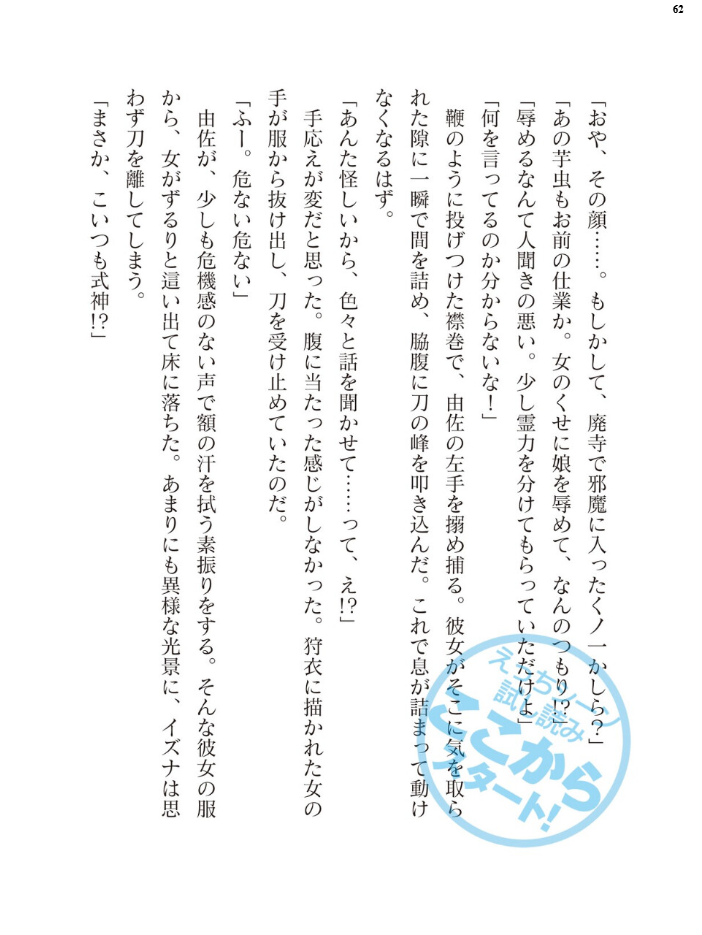 62
「おや、その顔……。もしかして、廃寺で邪魔に入ったくノ一かしら？」
「あの芋虫もお前の仕業か。女のくせに娘を辱めて、なんのつもり!?」
「辱めるなんて人聞きの悪い。少し霊力を分けてもらっていただけよ」
「何を言ってるのか分からないな！」
　鞭のように投げつけた襟巻で、由佐の左手を搦め捕る。彼女がそこに気を取ら
れた隙に一瞬で間を詰め、脇腹に刀の峰を叩き込んだ。これで息が詰まって動け
なくなるはず。
「あんた怪しいから、色々と話を聞かせて……って、え!?」
　手応えが変だと思った。腹に当たった感じがしなかった。狩衣に描かれた女の
手が服から抜け出し、刀を受け止めていたのだ。
「ふー。危ない危ない」
　由佐が、少しも危機感のない声で額の汗を拭う素振りをする。そんな彼女の服
から、女がずるりと這い出て床に落ちた。あまりにも異様な光景に、イズナは思
わず刀を離してしまう。
「まさか、こいつも式神!?」
えっちシーン
試し読み
ここから
スタート！